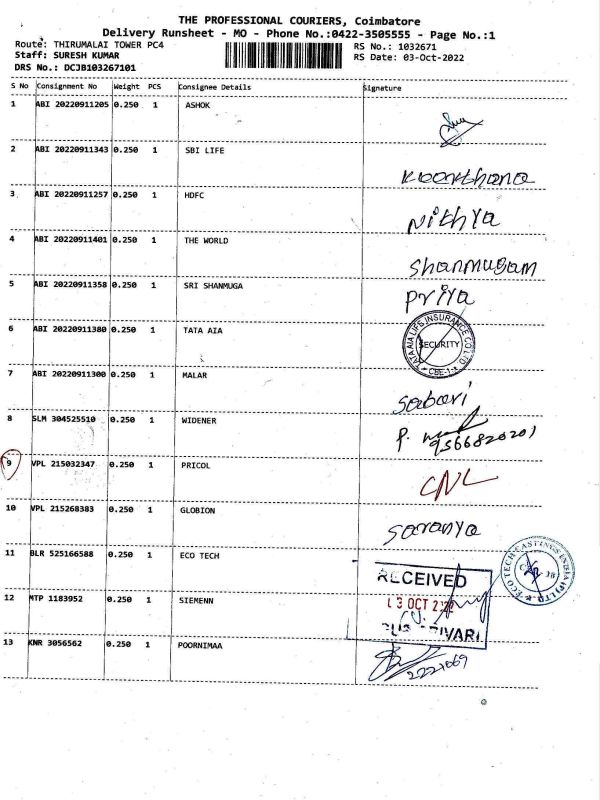 THE PROFESSIONAL COURIERS, Coimbatore
Delivery Runsheet - MO - Phone No.:0422-3505555 - Page No.:1
Route: THIRUMALAI TOWER PC4 RS No.: 1032671
Staff: SURESH KUMAR RS Date: 03-Oct-2022
DRS No.: DCJB103267101
S No Consignment No Weight PCS Consignee Details Signature
1 ABI 20220911205 0.250 1 ASHOK
2 ABI 20220911343 0.250 1 SBI LIFE
Keerthana
3 ABI 20220911257 0.250 1 HDFC
Nithya
4 ABI 20220911401 0.250 1 THE WORLD
Shanmugam
5 ABI 20220911358 0.250 1 SRI SHANMUGA
Priya
6 ABI 20220911380 0.250 1 TATA AIA
TATA AIA LIFE INSURANCE CO LTD
SECURITY
CBE-1
7 ABI 20220911300 0.250 1 MALAR
Sabari
8 SLM 304525510 0.250 1 WIDENER
P.
9566820201
9 VPL 215032347 0.250 1 PRICOL
CNL
10 VPL 215268383 0.250 1 GLOBION
Saranya
11 BLR 525166588 0.250 1 ECO TECH
ECO TECH CASTINGS INDIA (P) LTD
12 MTP 1183952 0.250 1 SIEMENN
RECEIVED
OCT
13 KNR 3056562 0.250 1 POORNIMAA